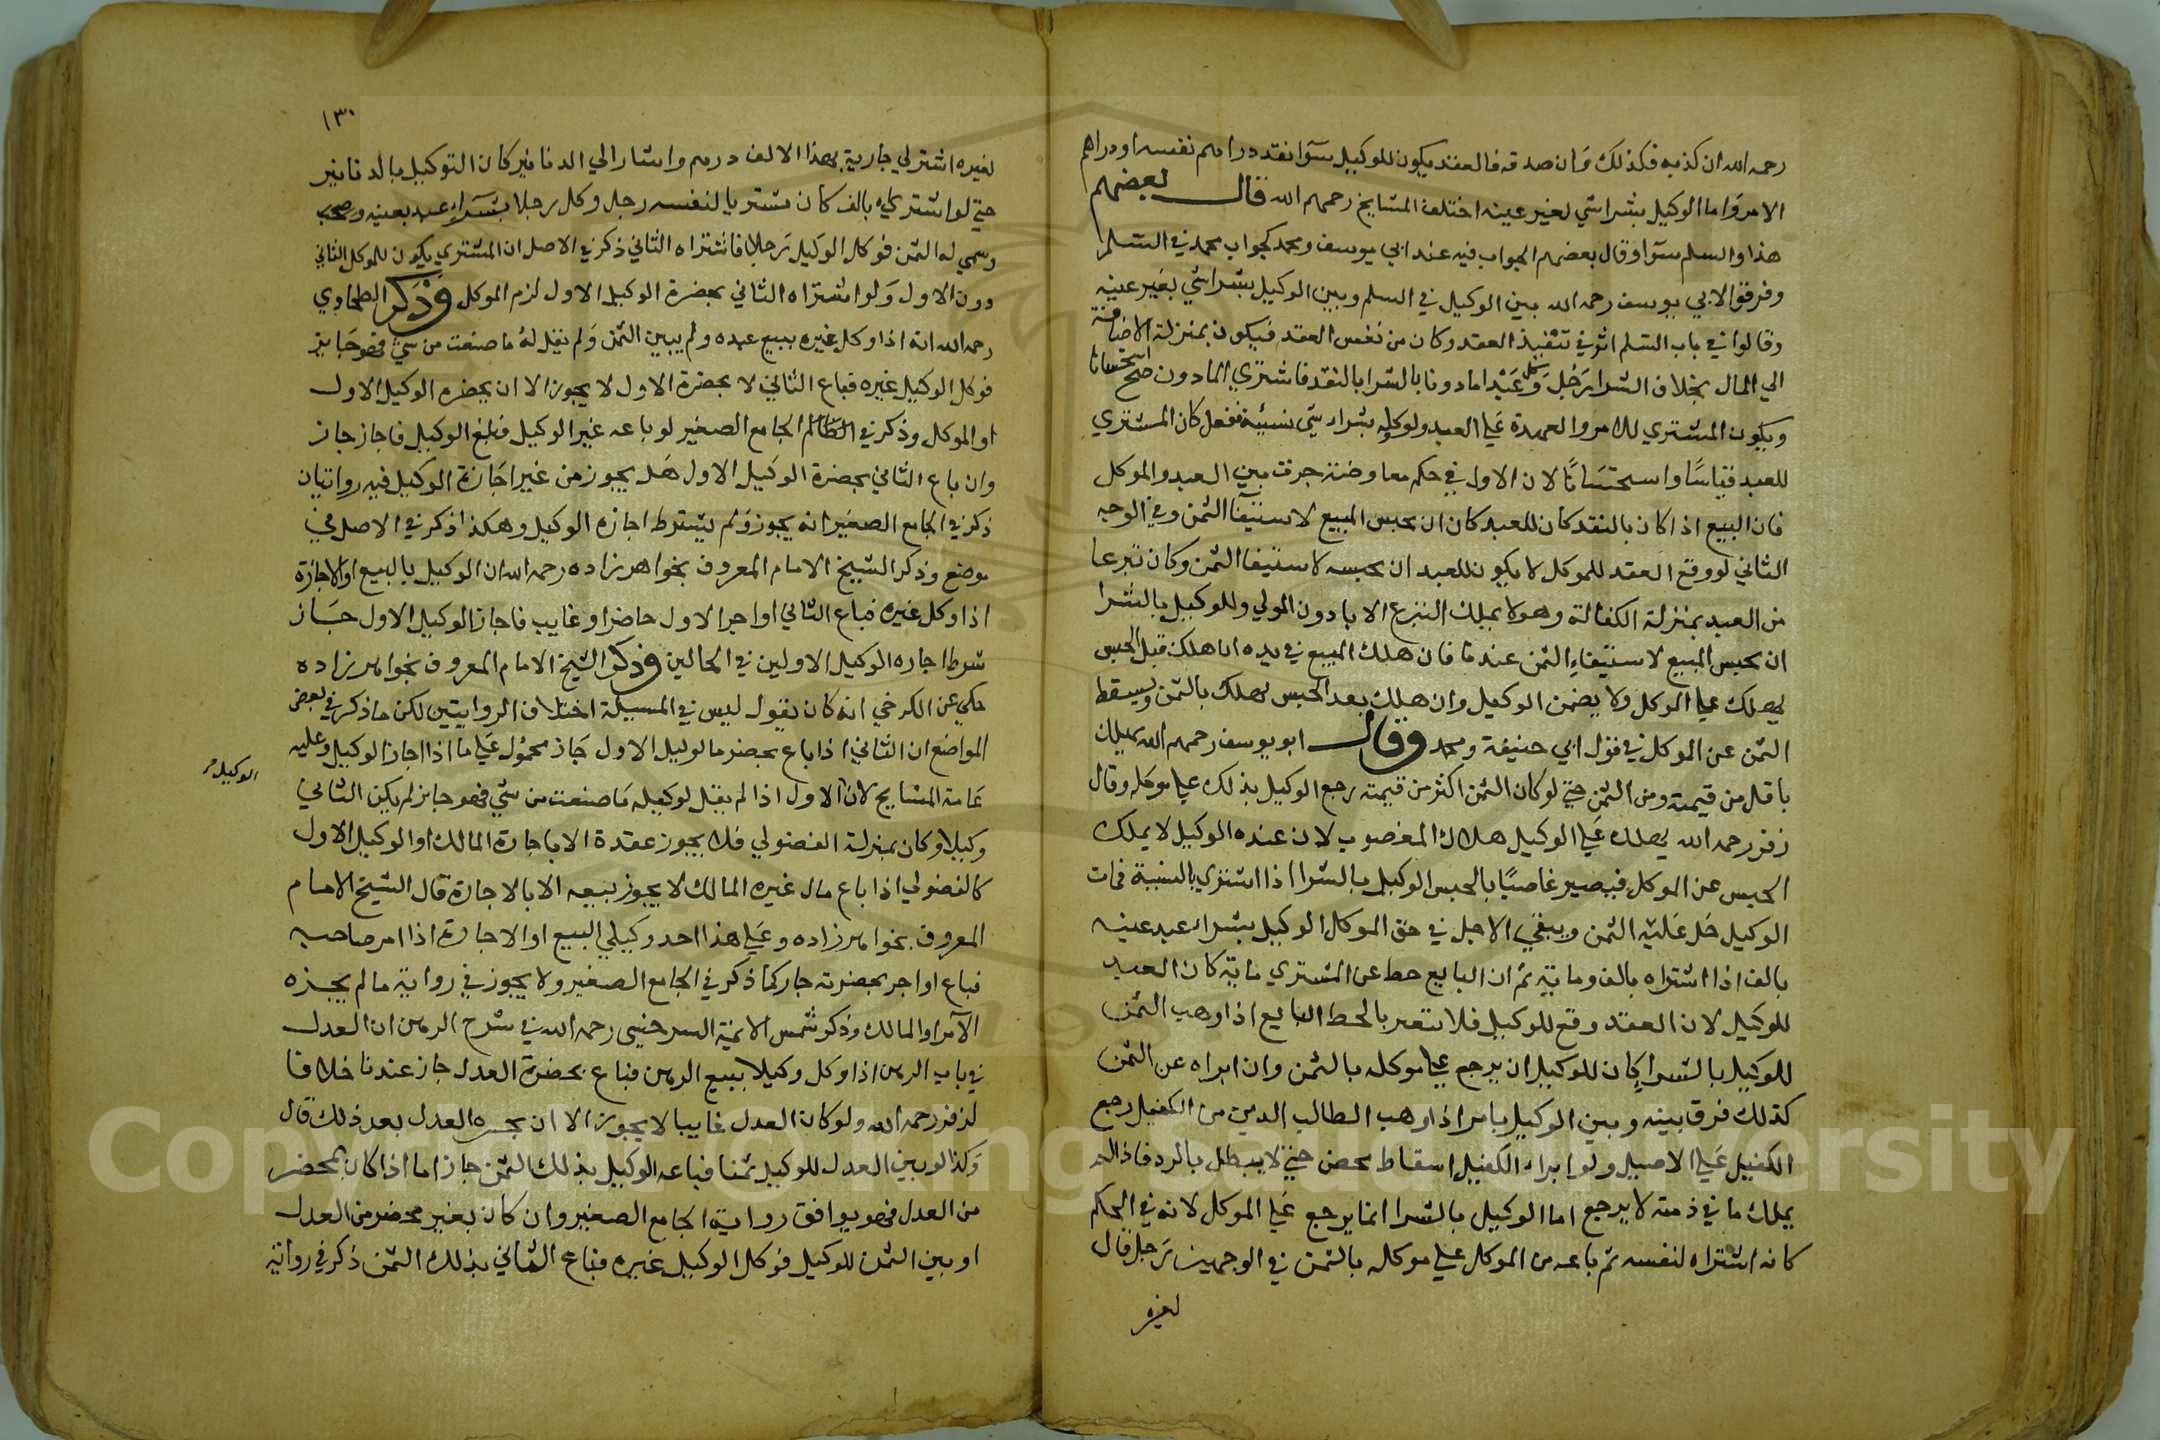 رحمه الله ان كذبه فكذلك وان صدقه فالعقد يكون للموكيل سوا نقد دراهم نفسه او دراهم
الامر واما الوكيل بشراشي لغير عينه اختلف المشايخ رحمهم الله قال بعضهم
هذا والسلم سوا وقال بعضهم الجواب فيه عند ابي يوسف ومحمد كجواب محمد في السلم
وفرقوا لابي يوسف رحمه الله بين الوكيل في السلم وبين الوكيل بشراشي بغير عينه
وقالوا في باب السلم اثر في تنفيذ العقد وكان من نفس العقد فيكون بمنزلة الاضافة
الي المال بخلاف الشرا رجل وكل عبدا مادونا بالشرا بالنقد فاشتري المادون صح استحسانا
ويكون المشتري للامر والعهدة علي العبد ولو وكله بشراء شي نسيئة ففعل كان المشتري
للعبد قياسا واستحسانا لان الاول في حكم معاوضة جرت بين العبد والموكل
فان البيع اذا كان بالنقد كان للعبد كان ان يحبس المبيع لاستيفا الثمن وفي الوجه
الثاني لو وقع العقد للموكل لا يكون للعبد ان يحبسه لاستيفا الثمن وكان تبرعا
من العبد بمنزلة الكفالة وهو لا يملك التبرع الا باذن المولي وللوكيل بالشرا
ان يحبس المبيع لاستيفاء الثمن عندنا فان هلك المبيع في يده ان هلك قبل الحبس
يهلك علي الموكل ولا يضمن الوكيل وان هلك بعد الحبس يهلك بالثمن ويسقط
الثمن عن الموكل في قول ابي حنيفة ومحمد وقال ابو يوسف رحمهم الله يهلك
باقل من قيمته ومن الثمن حتي لو كان الثمن اكثر من قيمته يرجع الوكيل بذلك علي موكله وقال
زفر رحمه الله يهلك علي الوكيل هلاك المغصوب لان عنده الوكيل لا يملك
الحبس عن الموكل فيصير غاصبا بالحبس الوكيل بالشرا اذا اشتري بالنسية فمات
الوكيل حل عليه الثمن ويبقي الاجل في حق الموكل الوكيل بشراء عبد عينه
بالف اذا اشتراه بالف ومايه ثم ان البايع حط عن المشتري ماية كان العبد
للوكيل لان العقد وقع للوكيل فلا يتغير بالحط البايع اذا وهب الثمن
للوكيل بالشرا كان للوكيل ان يرجع علي موكله بالثمن وان ابراه عن الثمن
كذلك فرق بينه وبين الوكيل بامر اذا وهب الطالب الدين من الكفيل رجع
الكفيل علي الاصيل ولو ابراء الكفيل اسقاط محض حتي لا يبطل بالرد فاذا لم
يملك ما في ذمته لا يرجع اما الوكيل بالشرا انما يرجع علي الموكل لانه في الحكم
كانه اشتراه لنفسه ثم باعه من الموكل علي موكله بالثمن في الوجهين رجل قال
لغيره
١٣٠
لغيره اشتر لي جارية بهذا الالف درهم واشار الي الدنانير كان التوكيل بالدنانير
حتي لو اشتري بالف كان مشتريا لنفسه رجل وكل رجلا بشراء عبد بعينه
وسمي له الثمن فوكل الوكيل رجلا فاشتراه الثاني ذكر في الاصل ان المشتري يكون للموكل الثاني
دون الاول ولو اشتراه الثاني بحضرة الوكيل الاول لزم الموكل وذكر الطحاوي
رحمه الله انه اذا وكل غيره ببيع عبده ولم يبين الثمن ولم يقل له ما صنعت من شي فهو جايز
فوكل الوكيل غيره فباع الثاني لا بحضرة الاول لا يجوز الا ان يحضره الوكيل الاول
او الموكل وذكر في الجامع الصغير لو باعه غير الوكيل فبلغ الوكيل فاجاز جاز
وان باع الثاني بحضرة الوكيل الاول هل يجوز من غير اجازة الوكيل فيه روايتان
ذكر في الجامع الصغير انه يجوز ولم يشترط اجازه الوكيل وهكذا ذكر في الاصل في
موضع وذكر الشيخ الامام المعروف بخواهرزاده رحمه الله ان الوكيل بالبيع او الاجازة
اذا وكل غيره فباع الثاني او اجر الاول حاضر او غايب فاجاز الوكيل الاول جاز
شرط اجازه الوكيل الاولين في الحالين وذكر الشيخ الامام المعروف بخواهرزاده
حكي عن الكرخي انه كان يقول ليس في المسيلة اختلاف الروايتين لكن ما ذكر في بعض
المواضع ان الثاني اذا باع بحضر مالوليل الاول جاز محمول علي ما اذا اجاز الوكيل وعليه
الوكيل
عامة المشايخ لان الاول اذا لم يقل لوكيله ما صنعت من شي فهو جايز لم يكن الثاني
وكيلا وكان بمنزلة الفضولي فلا يجوز عقدة الا باجازة المالك او الوكيل الاول
كالفضولي اذا باع مال غيره المالك لا يجوز بيعه الا بالاجازة قال الشيخ الامام
المعروف بخواهرزاده وعلي هذا احد وكيلي البيع او الاجارة اذا امر صاحبه
فباع او اجر بحضرته جاز كما ذكر في الجامع الصغير ولا يجوز في رواية ما لم يجزه
الآمر او المالك وذكر شمس الائمة السرخسي رحمه الله في شرح الرهن ان العدل
في باب الرهن اذا وكل وكيلا ببيع الرهن فباع بحضرة العدل جاز عندنا خلافا
لزفر رحمه الله ولو كان العدل غايبا لا يجوز الا ان يجيزه العدل بعد ذلك قال
وكذا لو بين العدل للوكيل ثمنا فباعه الوكيل بذلك الثمن جاز اما اذا كان بمحضر
من العدل فهو يوافق رواية الجامع الصغير وان كان بغير محضر من العدل
او بين الثمن للوكيل فوكل الوكيل غيره فباع الثاني بذلك الثمن ذكر في رواية
Copyright © King Saud University